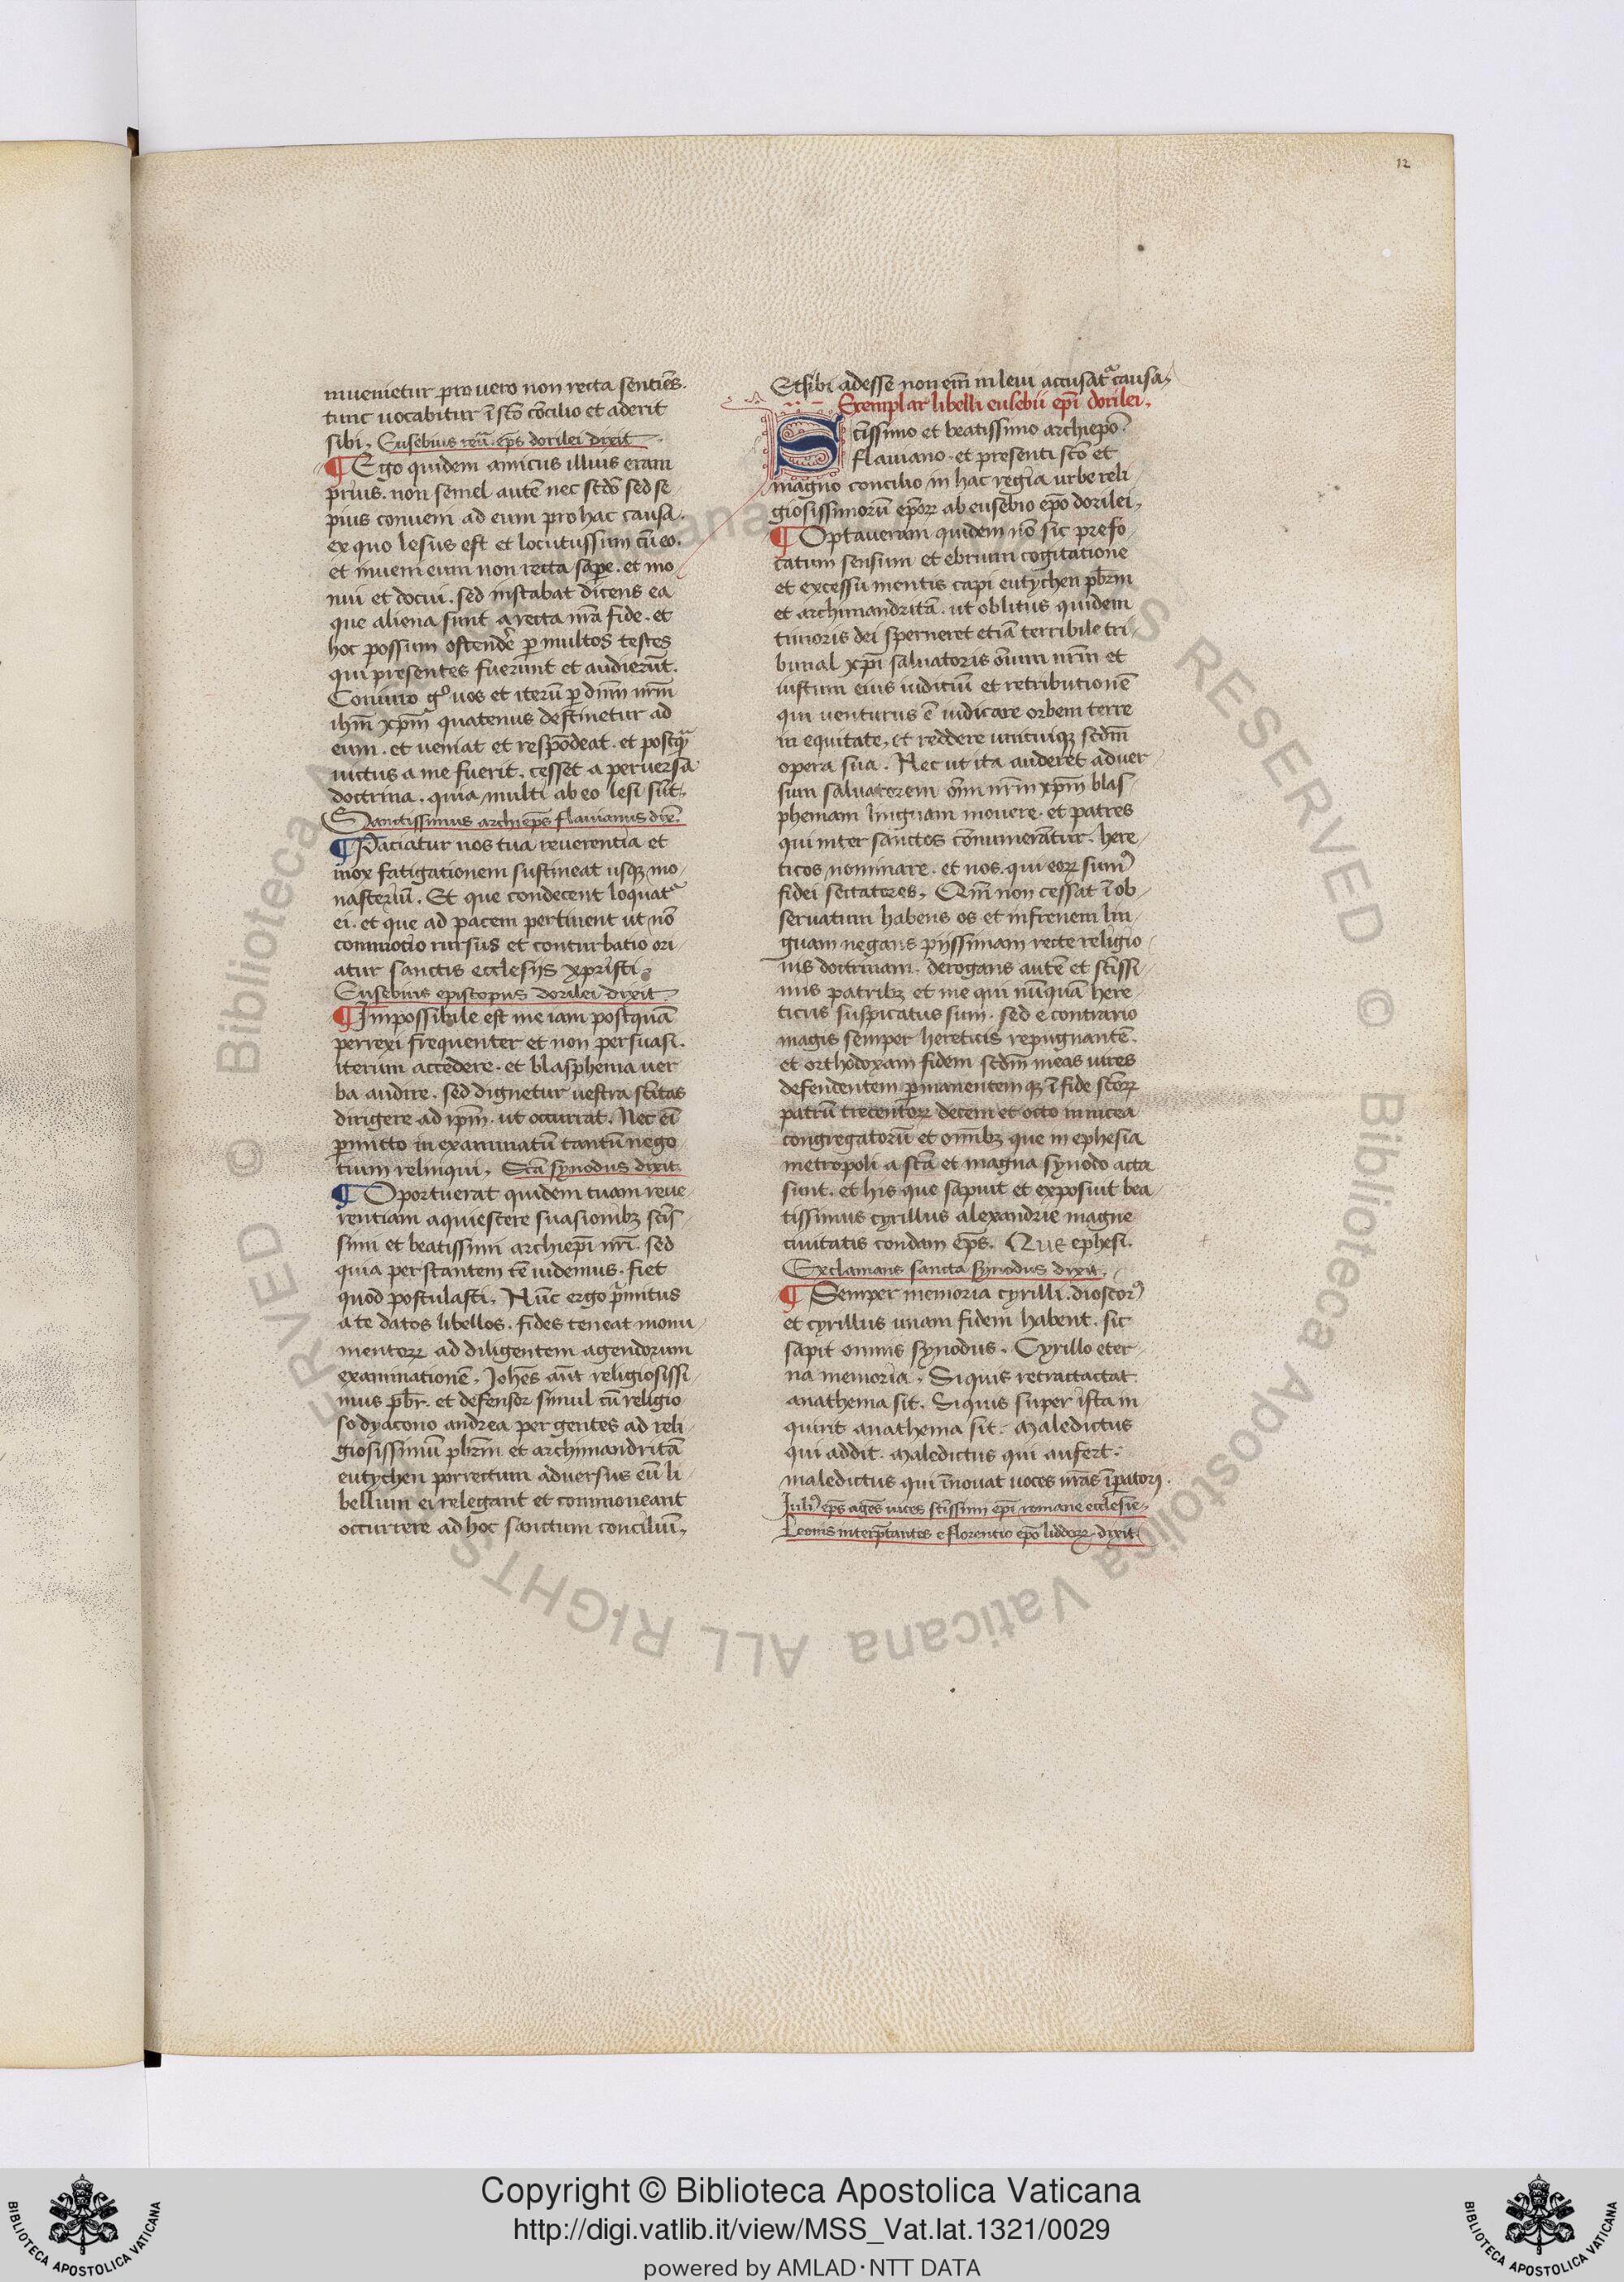 12
inuenietur pro uero non recta sentiẽs.
tunc uocabitur ĩ sc̃o cõcilio et aderit
sibi. Eusebius reũ. ep̃s dorilei dixit
¶ Ego quidem amicus illius eram
prius. non semel autẽ nec sc̃do sed se
pius conueni ad eum pro hac causa.
ex quo lesus est et locutus sum cũ eo.
et inueni eum non recta sapere. et mo
nui et docui. sed instabat dicens ea
que aliena sunt a recta nr̃a fide. et
hoc possum ostendẽ ꝑ multos testes
qui presentes fuerunt et audierũt.
Coniuro gͦ uos et iterũ ꝑ dñm nr̃m
ihm̃ xp̃m quatenus destinetur ad
eum. et ueniat et respõdeat. et postqᷓ
uictus a me fuerit. cesset a peruersa
doctrina. quia multi ab eo lesi sũt.
Sanctissimus archiep̃s flauianus dix̃.
¶ Paciatur nos tua reuerentia et
mox fatigationem sustineat usqꝫ mo
nasteriũ. Et que condecent loquatᷣ
ei. et que ad pacem pertinent ut nõ
commotio rursus et conturbatio ori
atur sanctis ecclesijs xpristi
Eusebius episcopus dorilei dixit
¶ Impossibile est me iam postquã
perrexi frequenter et non persuasi.
iterum accedere. et blasphema uer
ba audire. sed dignetur uestra sc̃itas
dirigere ad ip̃m. ut occurrat. Nec eĩ
ꝑmitto in examinatũ tantũ nego
tium relinqui. Sc̃a synodus dixit
¶ Oportuerat quidem tuam reue
rentiam aquiescere suasionibꝫ sc̃is
simi et beatissimi archiep̃i nr̃i. sed
quia perstantem te uidemus. fiet
quod postulasti. Nũc ergo p̃mitus
a te datos libellos. fides teneat monu
mentoꝝ ad diligentem agendorum
examinationẽ. Joh̃es aũt religiosissi
mus p̃br. et defensor simul cũ religio
so dyacono andrea pergentes ad reli
giosissimũ p̃brm et archimandritã
eutychen porrectum aduersus eũ li
bellum ei relegant et commoneant
occurrere ad hoc sanctum conciliũ.
Et sibi adesse non em̃ in leui accusatᷣ causa.
Exemplar libelli eusebii ep̃i dorilei.
Sc̃issimo et beatissimo archiep̃o
flauiano. et presenti sc̃o et
magno concilio in hac regia urbe reli
giosissimorũ ep̃oꝝ ab eusebio ep̃o dorilei.
¶ Optaueram quidem nõ sic prefo
catum sensum et ebrium cogitatione
et excessu mentis capi eutychen p̃brm
et archimandritã. ut oblitus quidem
timoris dei sperneret etiã terribile tri
bunal xp̃i saluatoris oĩum nr̃m et
iustum eius iudiciũ et retributionẽ
qui uenturus ẽ iudicare orbem terre
in equitate. et reddere unicuiqꝫ sc̃dm
opera sua. Nec ut ita auderet aduer
sum saluatorem oĩm nr̃m xp̃m blas
phemam linguam mouere. et patres
qui inter sanctos cõnumerãtur. here
ticos nominare. et nos. qui eoꝝ sumꝰ
fidei sectatores. Qm̃ non cessat ĩob
seruatum habens os et infrenem lin
guam negans pijssimam recte religio
nis doctrinam. derogans autẽ et sc̃issi
mis patribꝫ et me qui nũquã here
ticus suspicatus sum. sed e contrario
magis semper hereticis repugnantẽ.
et orthodoxam fidem sc̃dm meas uires
defendentem ꝑmanentemqꝫ ĩ fide sc̃oꝝ
patrũ trecentoꝝ decem et octo in nicea
congregatorũ et omĩbꝫ que in ephesia
metropoli a sc̃a et magna synodo acta
sunt. et his que sapuit et exposuit bea
tissimus cyrillus alexandrie magne
ciuitatis condam ep̃s. Qus ephesi.
Exclamans sancta synodus dixit.
¶ Semper memoria cyrilli. dioscorꝰ
et cyrillus unam fidem habent. sic
sapit omnis synodus. Cyrillo eter
na memoria. Siquis retractactat
anathema sit. Siquis super ista in
quirit anathema sit. Maledictus
qui addit. Maledictus qui aufert.
maledictus qui ĩnouat uoces nr̃as ĩꝑatorꝫ.
Juliꝰ ep̃s agẽs uices sc̃issimi ep̃i romane ecclesie.
Leonis interp̃tantes e florentio ep̃o liddoꝝ. dixit
Copyright © Biblioteca Apostolica Vaticana
http://digi.vatlib.it/view/MSS_Vat.lat.1321/0029
powered by AMLAD·NTT DATA
BIBLIOTECA APOSTOLICA VATICANA
BIBLIOTECA APOSTOLICA VATICANA